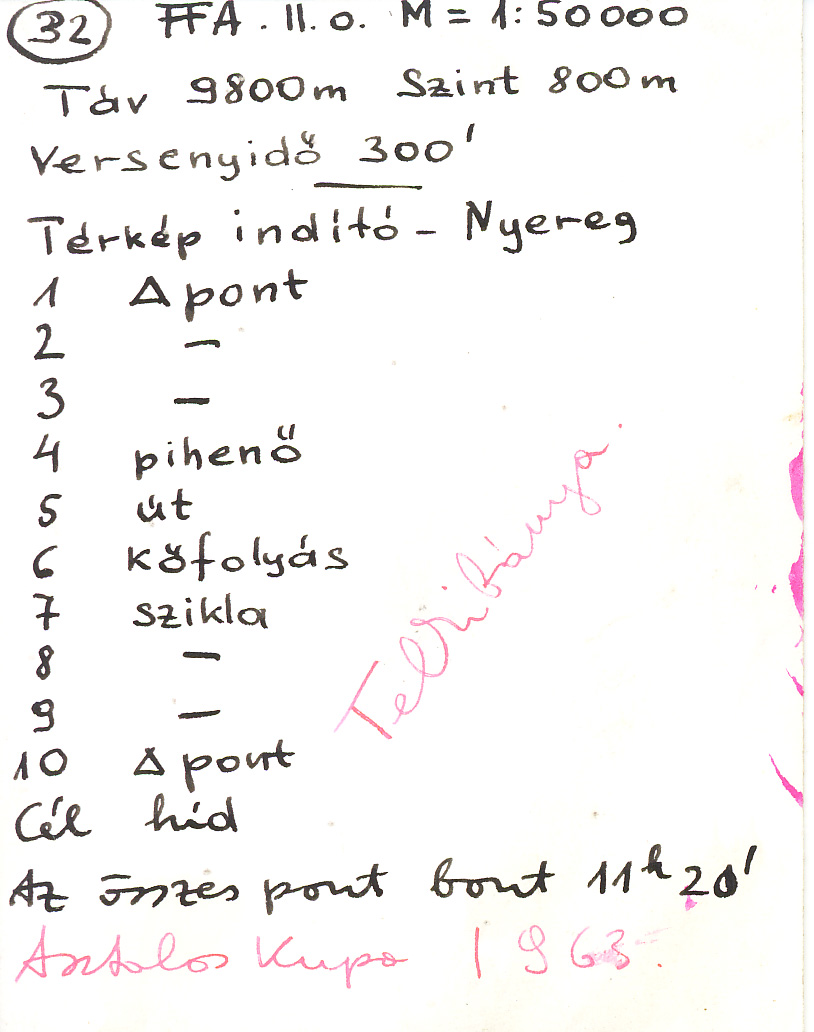 32 FFA. II. o. M = 1:50000
Táv 9800m Szint 800m
Versenyidő 300'
Térkép indító - Nyereg
1 Δ pont
2 –
3 –
4 pihenő
5 út
6 kőfolyás
7 szikla
8 –
9 –
10 Δ pont
Cél híd
Az összes pont bont 11h 20'
Telkibánya.
Asztalos Kupa 1963.